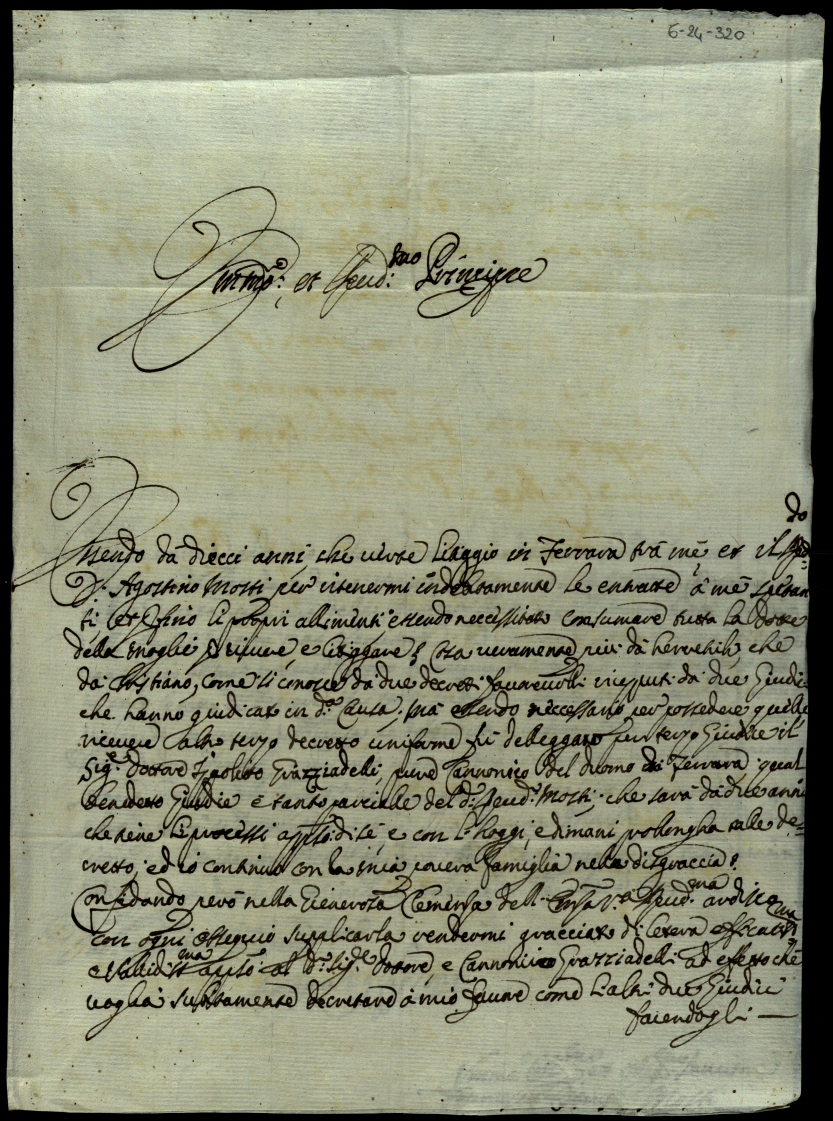 6-24-320
Emin.mo: et Reud.mo: Principe
Essendo da diecci anni, che uerte Litiggio in Ferrara trà mè et il Reu.do
D. Agostino Mosti per ritenermi indebitamente le entratte à mè spetan
ti et sino li propri allimenti essendo neccessitato consumare tutta la dotte
della moglie p. viuere, e litiggare, Cosa ueramente più da herretich, che
da Cristiano, come si conosce da due decretti faureuolli riceputi da due Giudici
che hanno giudicato in d.a Causa. mà essendo neccessario per possedere quelle
riceuere altro terzo decretto uniforme fù delleggato per terzo Giudice il
Sig.r dottore Ippolitto Grazziadelli, pure Cannonico del duomo di Ferrara qual
Benedetto Giudice è tanto parciale del d.o Reud.o Mosti, che sarà da due anni
che tiene li processi app.o di sé, e con l'hoggi, e dimani prolongha talle de=
cretto, ed io continuo con la mia pouera famiglia nella disgraccia.
Confidando però nella Beneuola Clemensa dell' Em.a V.a Reud.ma ardisco
con ogni ossequio supplicarla rendermi gracciato di letera efficaciss.ma
e Vallidis.ma app.o al d.o Sig.r dottore, e Cannonico Grazziadelli ad effetto che
uoglia subitamente decretare à mio fauore come li altri due Giudici
facendogli —